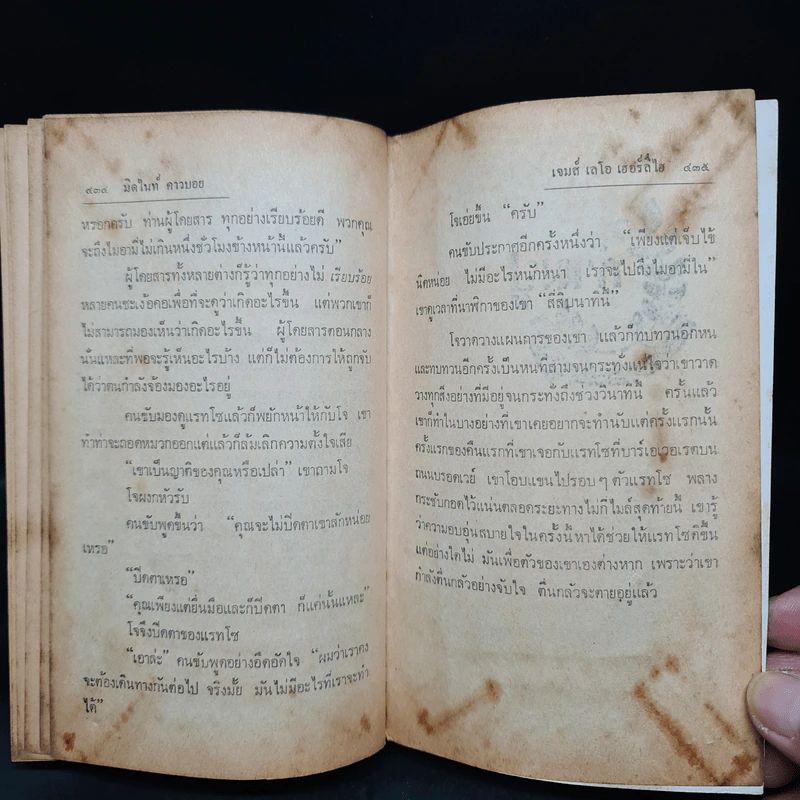 ๔๓๔ มิดไนท์ คาวบอย
หรอกครับ ท่านผู้โดยสาร ทุกอย่างเรียบร้อยดี พวกคุณ
จะถึงไมอามี่ไม่เกินหนึ่งชั่วโมงข้างหน้านี้แล้วครับ”
ผู้โดยสารทั้งหลายต่างก็รู้ว่าทุกอย่างไม่ เรียบร้อย
หลายคนชะเง้อคอเพื่อที่จะดูว่าเกิดอะไรขึ้น แต่พวกเขาก็
ไม่สามารถมองเห็นว่าเกิดอะไรขึ้น ผู้โดยสารตอนกลาง
นั่นแหละที่พอจะรู้เห็นอะไรบ้าง แต่ก็ไม่ต้องการให้ถูกจับ
ได้ว่าตนกำลังจ้องมองอะไรอยู่
คนขับมองดูแรทโซแล้วก็พยักหน้าให้กับโจ เขา
ทำท่าจะถอดหมวกออกแต่แล้วก็ล้มเลิกความตั้งใจเสีย
“เขาเป็นญาติของคุณหรือเปล่า” เขาถามโจ
โจผงกหัวรับ
คนขับพูดขึ้นว่า “คุณจะไม่ปิดตาเขาสักหน่อย
เหรอ”
“ปิดตาเหรอ”
“คุณเพียงแต่ยื่นมือและก็ปิดตา ก็แค่นั้นแหละ”
โจจึงปิดตาของแรทโซ
“เอาล่ะ” คนขับพูดอย่างอึดอัดใจ “ผมว่าเราคง
จะต้องเดินทางกันต่อไป จริงมั้ย มันไม่มีอะไรที่เราจะทำ
ได้”
เจมส์ เลโอ เฮอร์ลี่ไฮ ๔๓๕
โจเอ่ยขึ้น “ครับ”
คนขับประกาศอีกครั้งหนึ่งว่า “เพียงแต่เจ็บไข้
นิดหน่อย ไม่มีอะไรหนักหนา เราจะไปถึงไมอามี่ใน”
เขาดูเวลาที่นาฬิกาของเขา “สี่สิบนาทีนี้”
โจวาดวางแผนการของเขา แล้วก็ทบทวนอีกหน
และทบทวนอีกครั้งเป็นหนที่สามจนกระทั่งแน่ใจว่าเขาวาด
วางทุกสิ่งอย่างที่มีอยู่จนกระทั่งถึงช่วงวินาทีนี้ ครั้นแล้ว
เขาก็ทำในบางอย่างที่เขาเคยอยากจะทำนับแต่ครั้งแรกนั้น
ครั้งแรกของคืนแรกที่เขาเจอกับแรทโซที่บาร์เอเวอเรตบน
ถนนบรอดเวย์ เขาโอบแขนไปรอบๆ ตัวแรทโซ พลาง
กระชับกอดไว้แน่นตลอดระยะทางไม่กี่ไมล์สุดท้ายนี้ เขารู้
ว่าความอบอุ่นสบายใจในครั้งนี้หาได้ช่วยให้แรทโซดีขึ้น
แต่อย่างใดไม่ มันเพื่อตัวของเขาเองต่างหาก เพราะว่าเขา
กำลังตื่นกลัวอย่างจับใจ ตื่นกลัวจะตายอยู่แล้ว